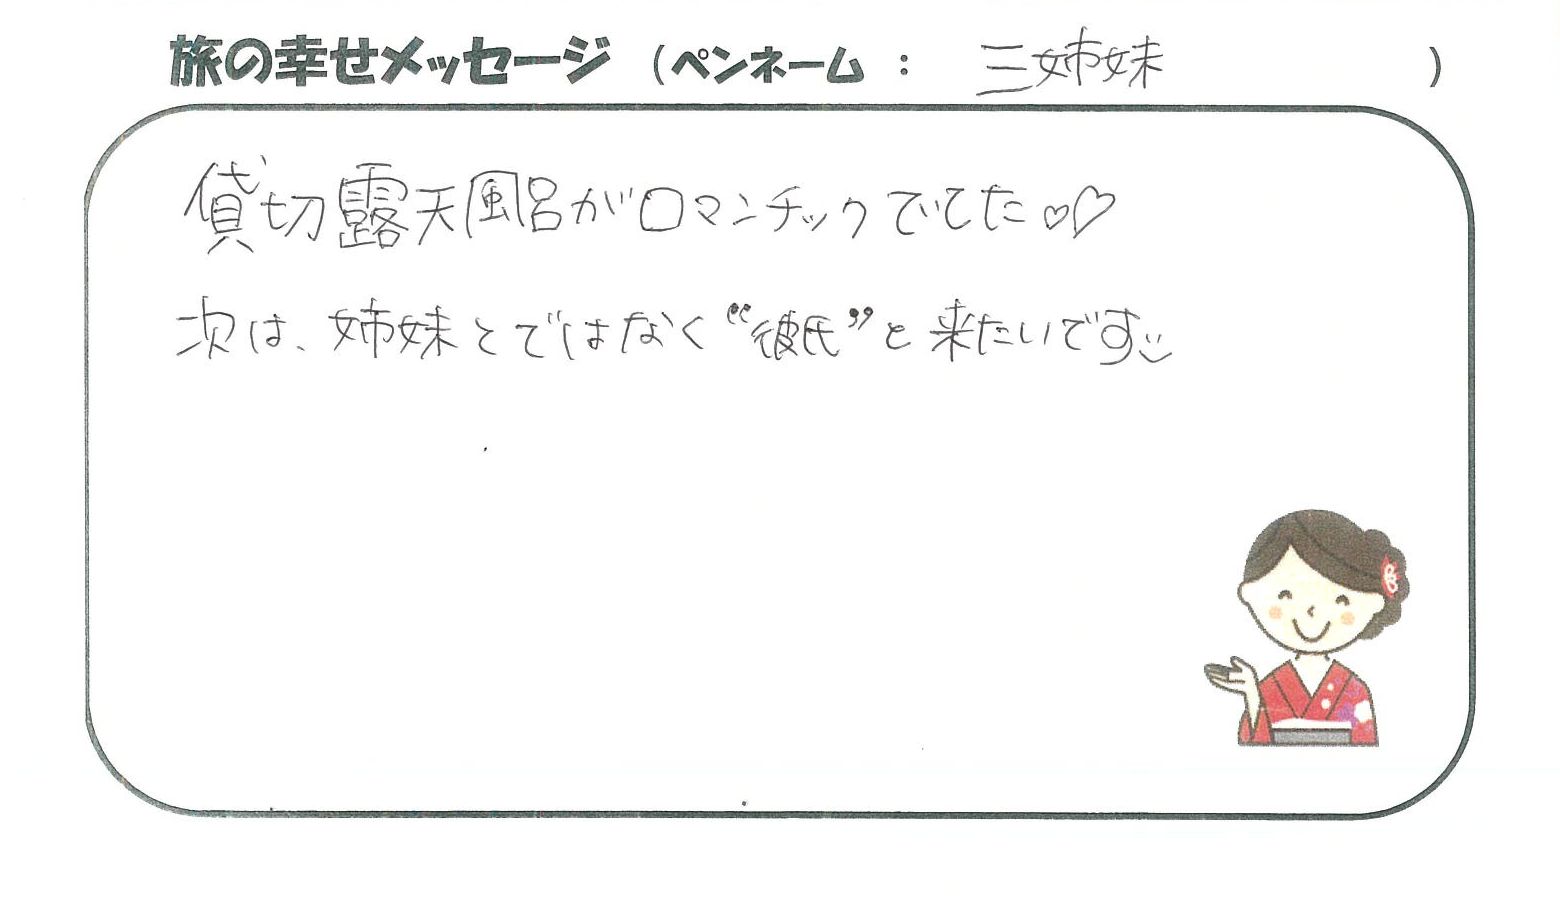 旅の幸せメッセージ (ペンネーム : 三姉妹 )
貸切露天風呂がロマンチックでてた♡♡
次は、姉妹とではなく“彼氏”と来たいです